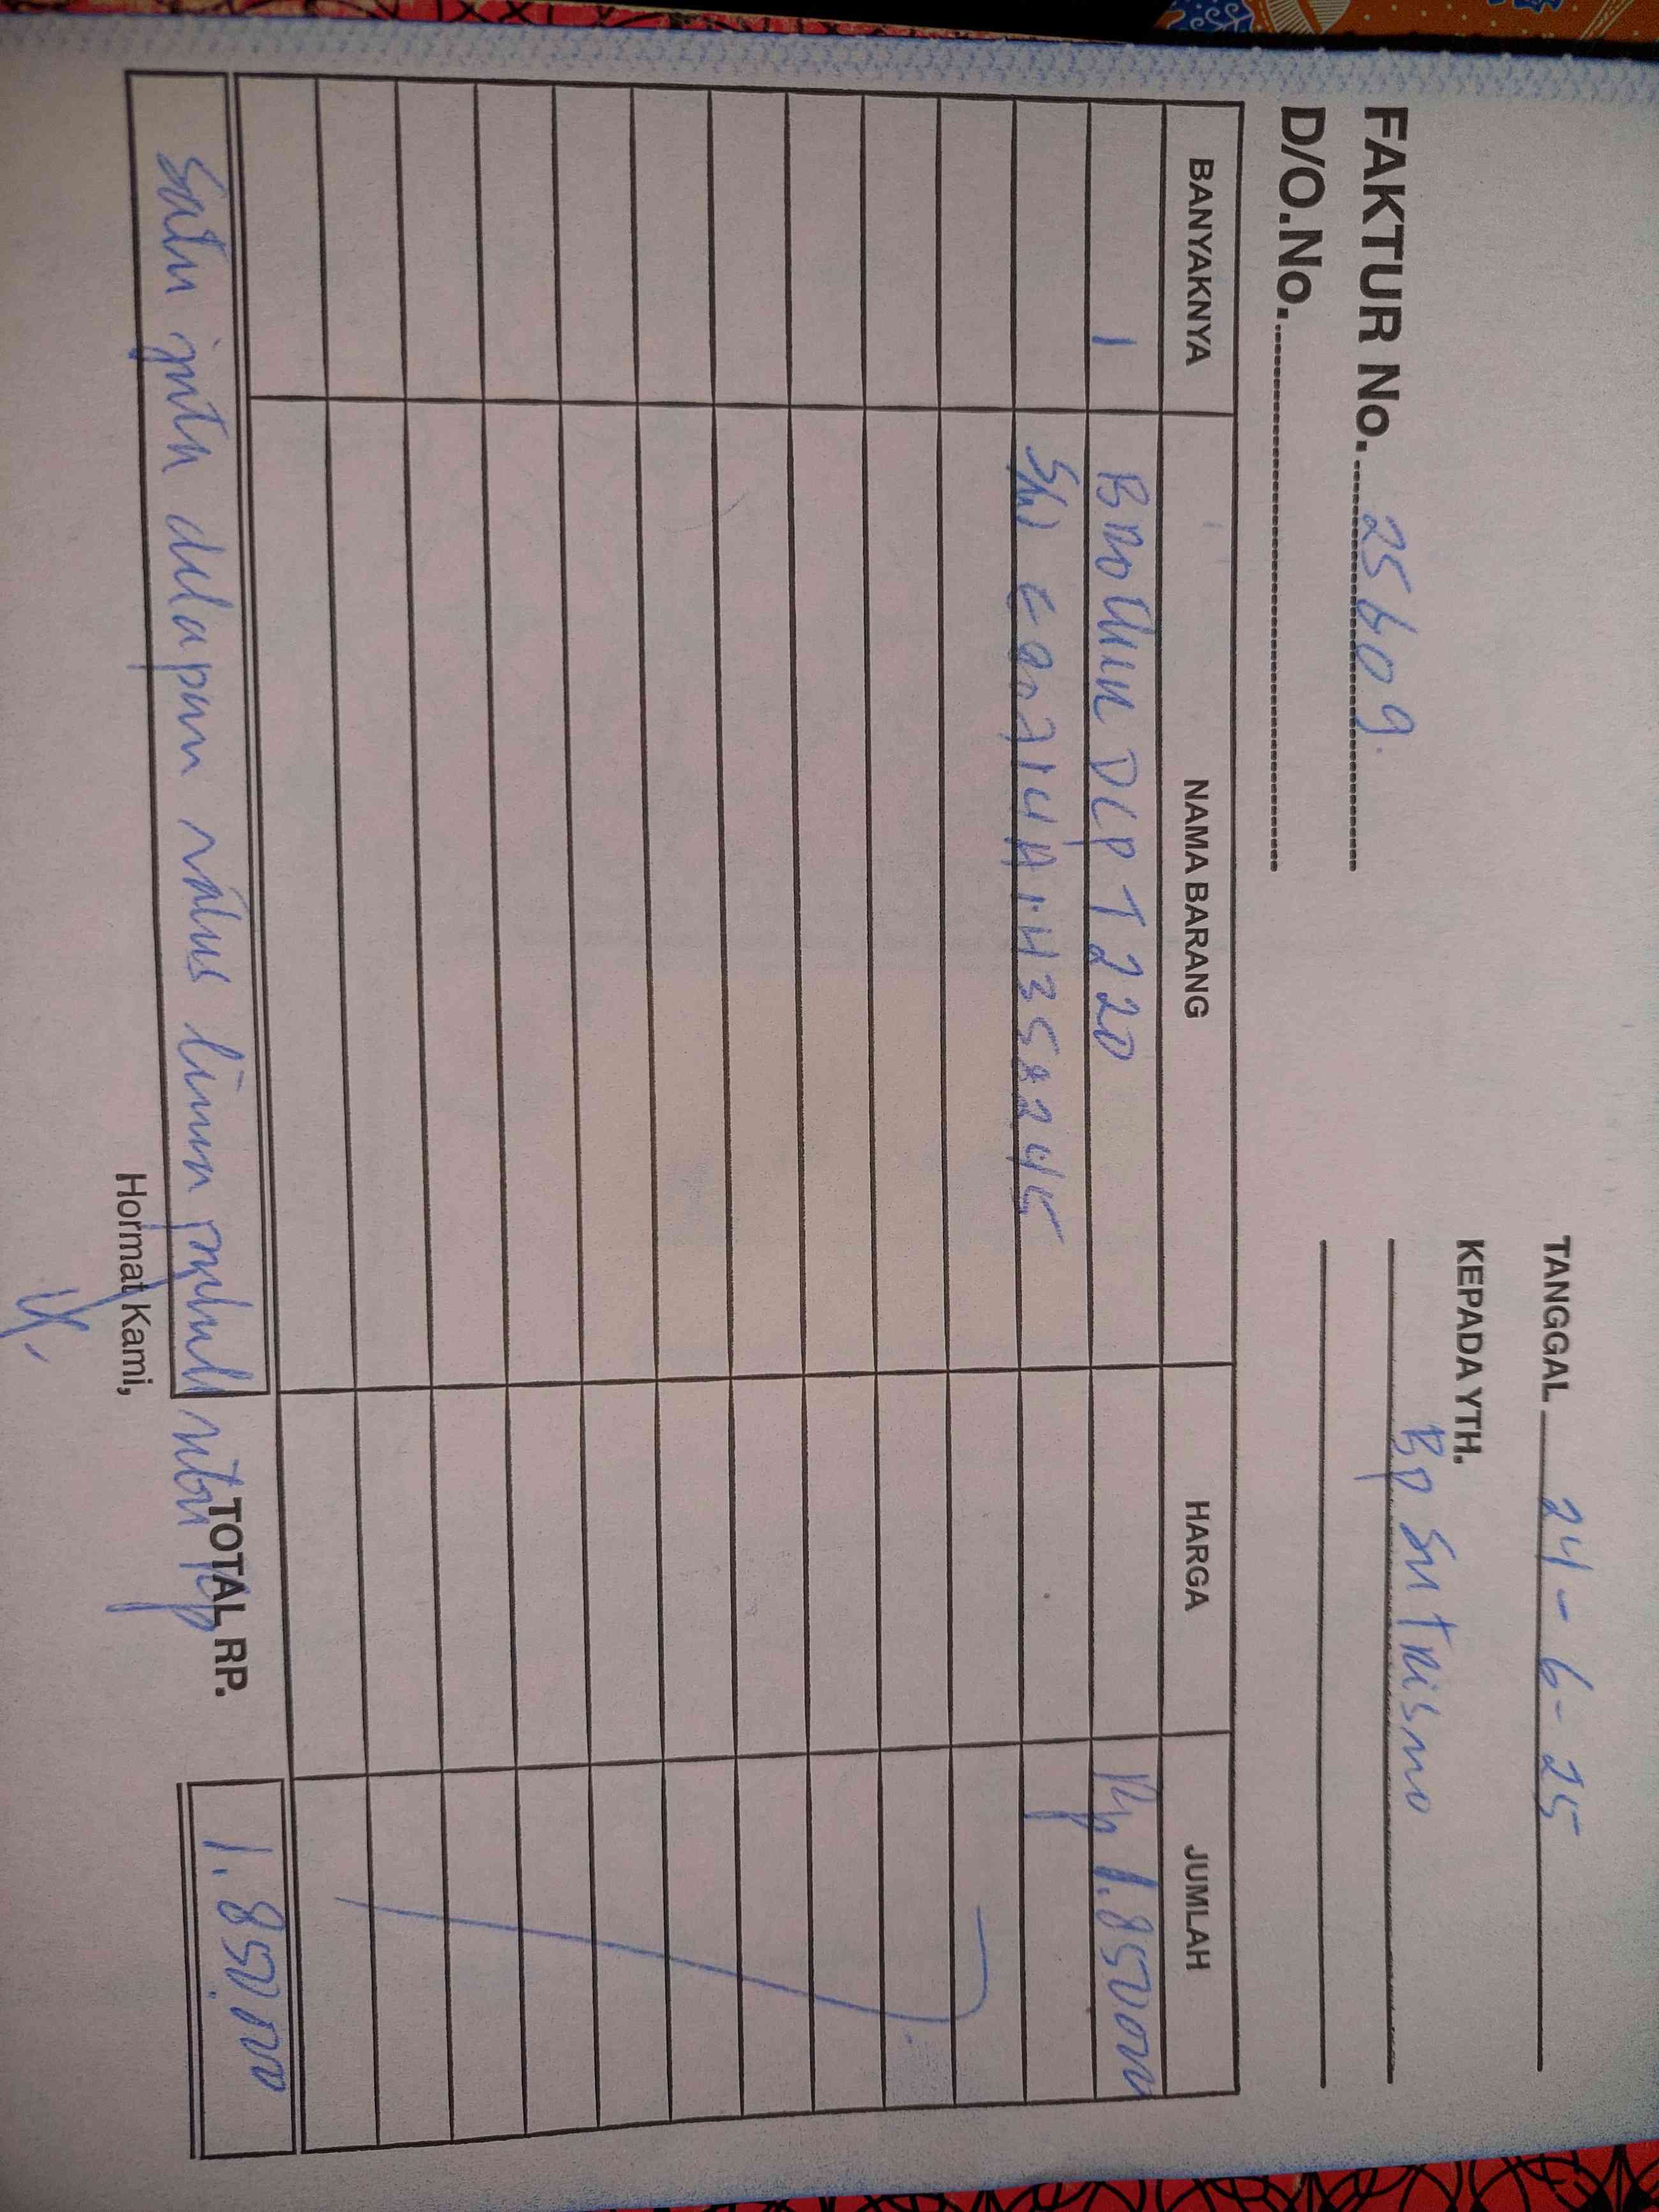 FAKTUR No. 25609.
D/O.No.
TANGGAL 24-6-25
KEPADA YTH.
Bp Sutrisno
BANYAKNYA NAMA BARANG HARGA JUMLAH
1 Brother DCP T220 Rp 1.850000
TOTAL RP. 1.850.000
Satu juta delapan ratus lima puluh ribu rp
Hormat Kami,